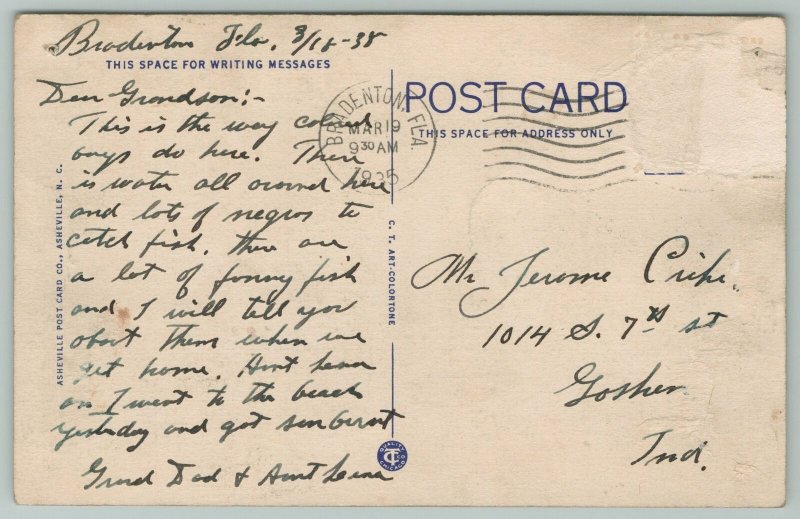 Bradenton Fla. 3/18-38
THIS SPACE FOR WRITING MESSAGES
Dear Grandson:-
This is the way colored
boys do here. There
is water all around here
and lots of negros to
catch fish. there are
a lot of funny fish
and I will tell you
about them when we
get home. Aunt Lena
an I went to the beach
yesterday and got sun burnt
Grand Dad & Aunt Lena
ASHEVILLE POST CARD CO., ASHEVILLE, N. C.
C. T. ART-COLORTONE
QUALITY
CT
CHICAGO
BRADENTON, FLA.
MAR 19
9 30 AM
POST CARD
THIS SPACE FOR ADDRESS ONLY
Mr Jerome Cripe.
1014 S. 7th st
Goshen
Ind.